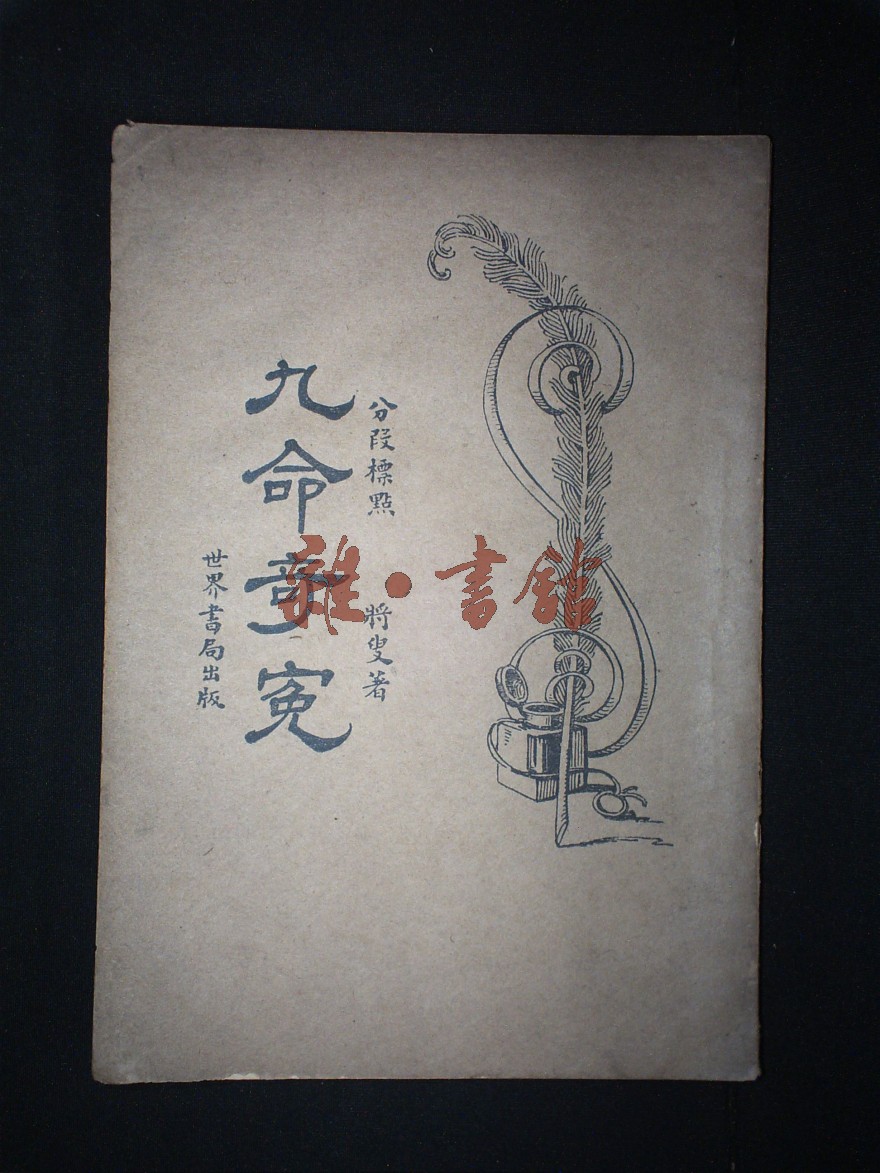 分段標點 將叟著
九命奇冤
世界書局出版
雜·書館